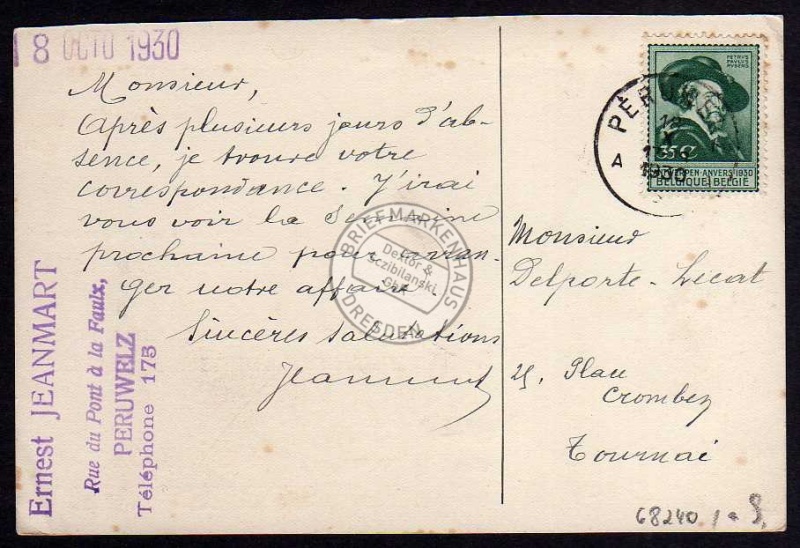 8 OCTO 1930
Monsieur,
Après plusieurs jours d'ab-
sence, je trouve votre
correspondance. J'irai
vous voir la Semaine
prochaine pour arran-
ger notre affaire.
Sincères salutations
Jeanmart
Ernest JEANMART
Rue du Pont à la Faulx,
PERUWELZ
Téléphone 175
PETRVS
PAVLVS
RVBENS
35c
ANTWERPEN-ANVERS 1930
BELGIQUE-BELGIË
A
1930
Monsieur
Delporte-Lecat
25, Place
Crombez
Tournai
BRIEFMARKENHAUS
Dektor &
Sczibilanski
GbR
DRESDEN
68240